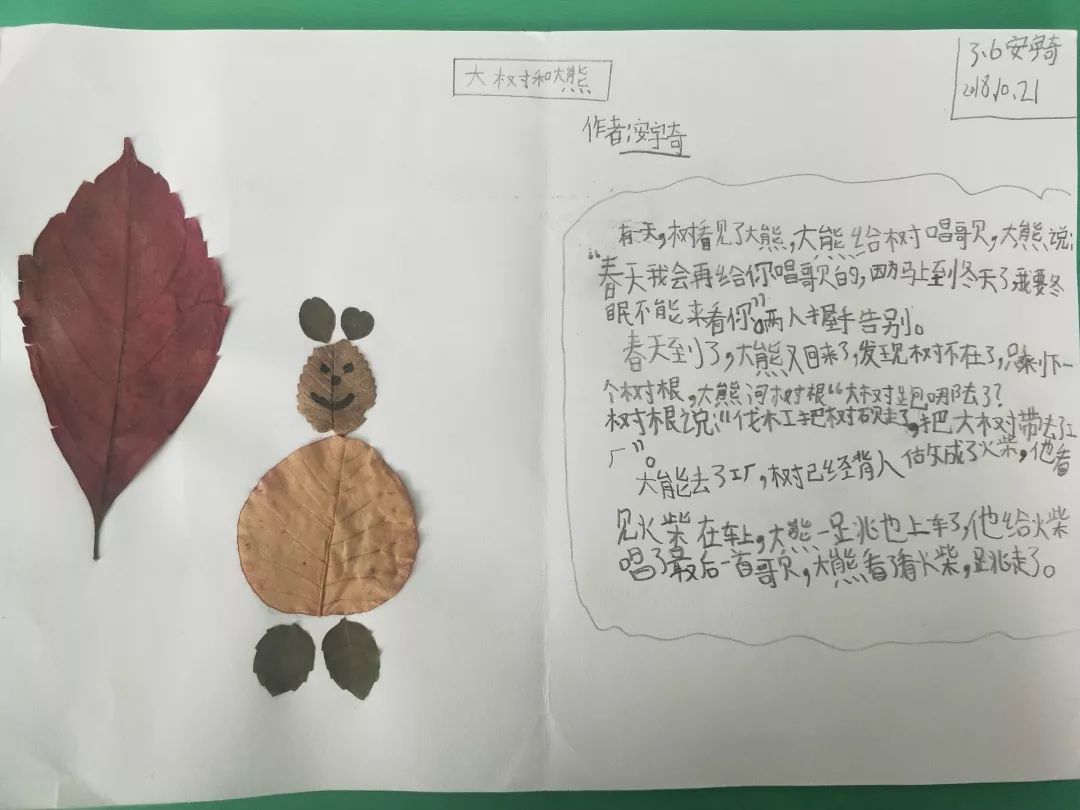 大树和大熊
3.6安宇奇
2018.10.21
作者:安宇奇
有一天,树看见了大熊,大熊给树唱歌,大熊说:
“春天我会再给你唱歌的,因为马上到冬天了我要冬
眠不能来看你”。两人握手告别。
春天到了,大熊又回来了,发现树不在了,只剩下一
个树根,大熊问树根“大树跑哪去了?
树根说:“伐木工把树砍走了,把大树带去工
厂”。
大能去了工厂,树已经背人做成了火柴,他看
见火柴在车上,大熊一跳也上车了,他给火柴
唱了最后一首歌,大熊看了看火柴,跳走了。